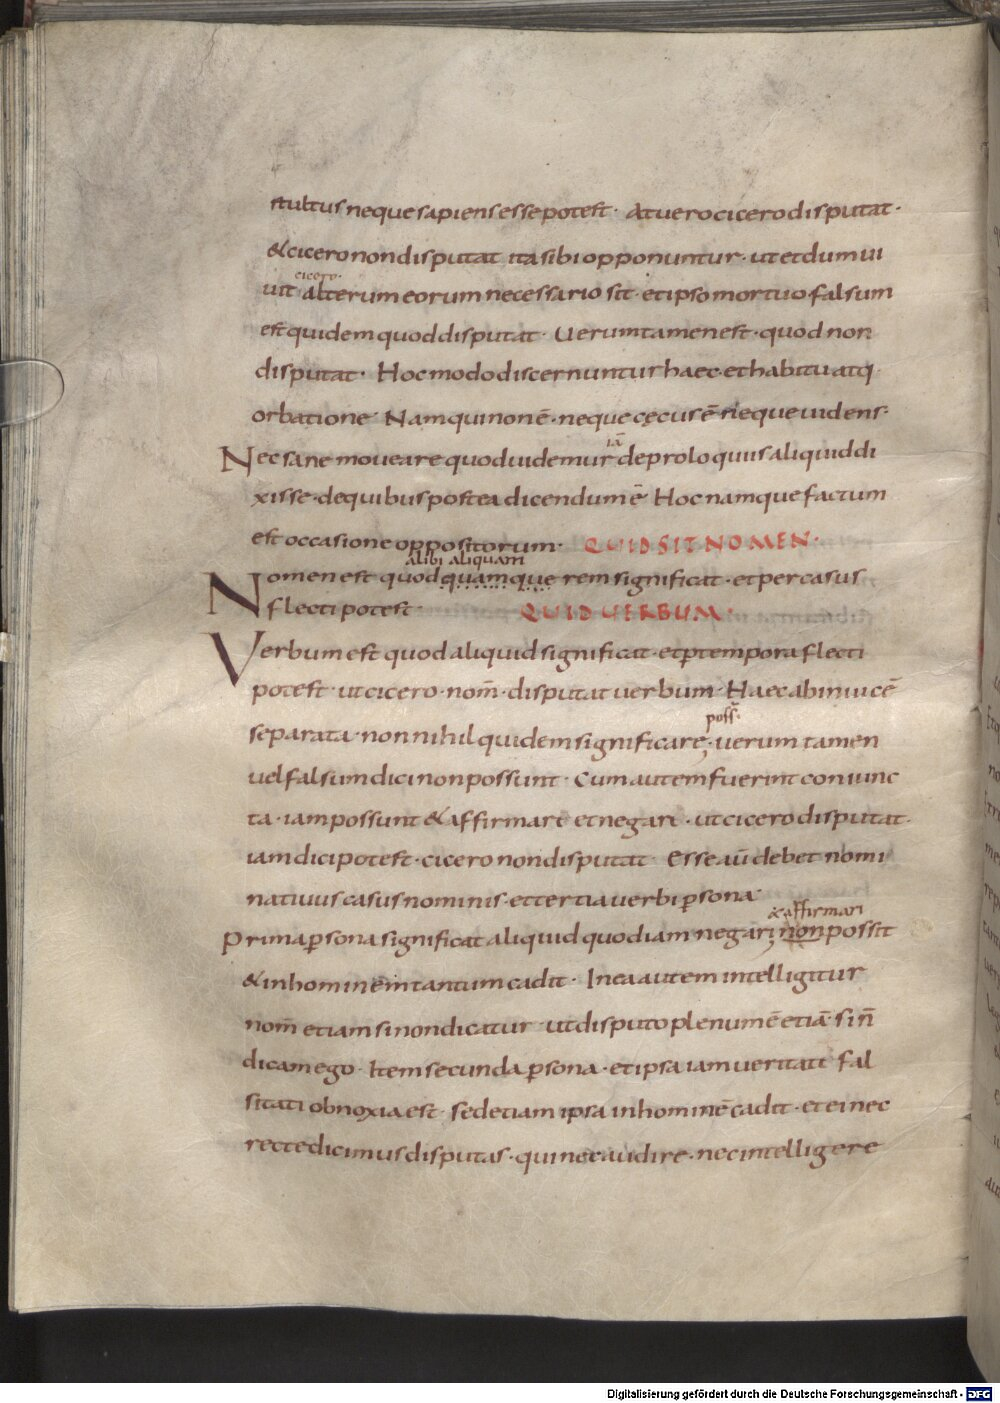 stultus neque sapiens esse potest · At uero cicero disputat ·
& cicero non disputat ita sibi opponuntur · ut et dum ui
cicero ·
uit alterum eorum necessario sit · et ipso mortuo falsum
est quidem quod disputat · Uerum tamen est · quod non
disputat · Hoc modo discernuntur haec · et habitu atq·
orbatione Nam qui non ē · neque cęcus ē neque uidens ·
iā
Nec sane moueare quod uidemur de proloquiis aliquid di
xisse · de quibus postea dicendum ē Hoc namque factum
est occasione oppositorum · QUID SIT NOMEN ·
alibi aliquam
Nomen est quod quamque rem significat · et per casus
flecti potest QUID UERBUM ·
Verbum est quod aliquid significat · et p tempora flecti
potest · ut cicero · nom̄ · disputat uerbum · Haec ab inuicē
poss̄ ·
separata · non nihil quidem significare; · uerum tamen
uel falsum dici non possunt · Cum autem fuerint coniunc
ta · iam possunt & affirmari et negari · ut cicero disputat ·
iam dici potest · cicero non disputat Esse aū debet nomi
natiuus casus nominis · et tertia uerbi psona
& affirmari
Prima psona significat aliquid quod iam negari non possit
& in hominem tantum cadit · In ea autem intelligitur
nom̄ etiam si non dicatur ut disputo plenum ē etiā · si n̄
dicam ego · Item secunda psona · et ipsa iam ueritati fal
sitati obnoxia est · sed etiam ipsa in hominē cadit · et ei nec
recte dicimus disputas · qui nec audire · nec intelligere
Digitalisierung gefördert durch die Deutsche Forschungsgemeinschaft - DFG